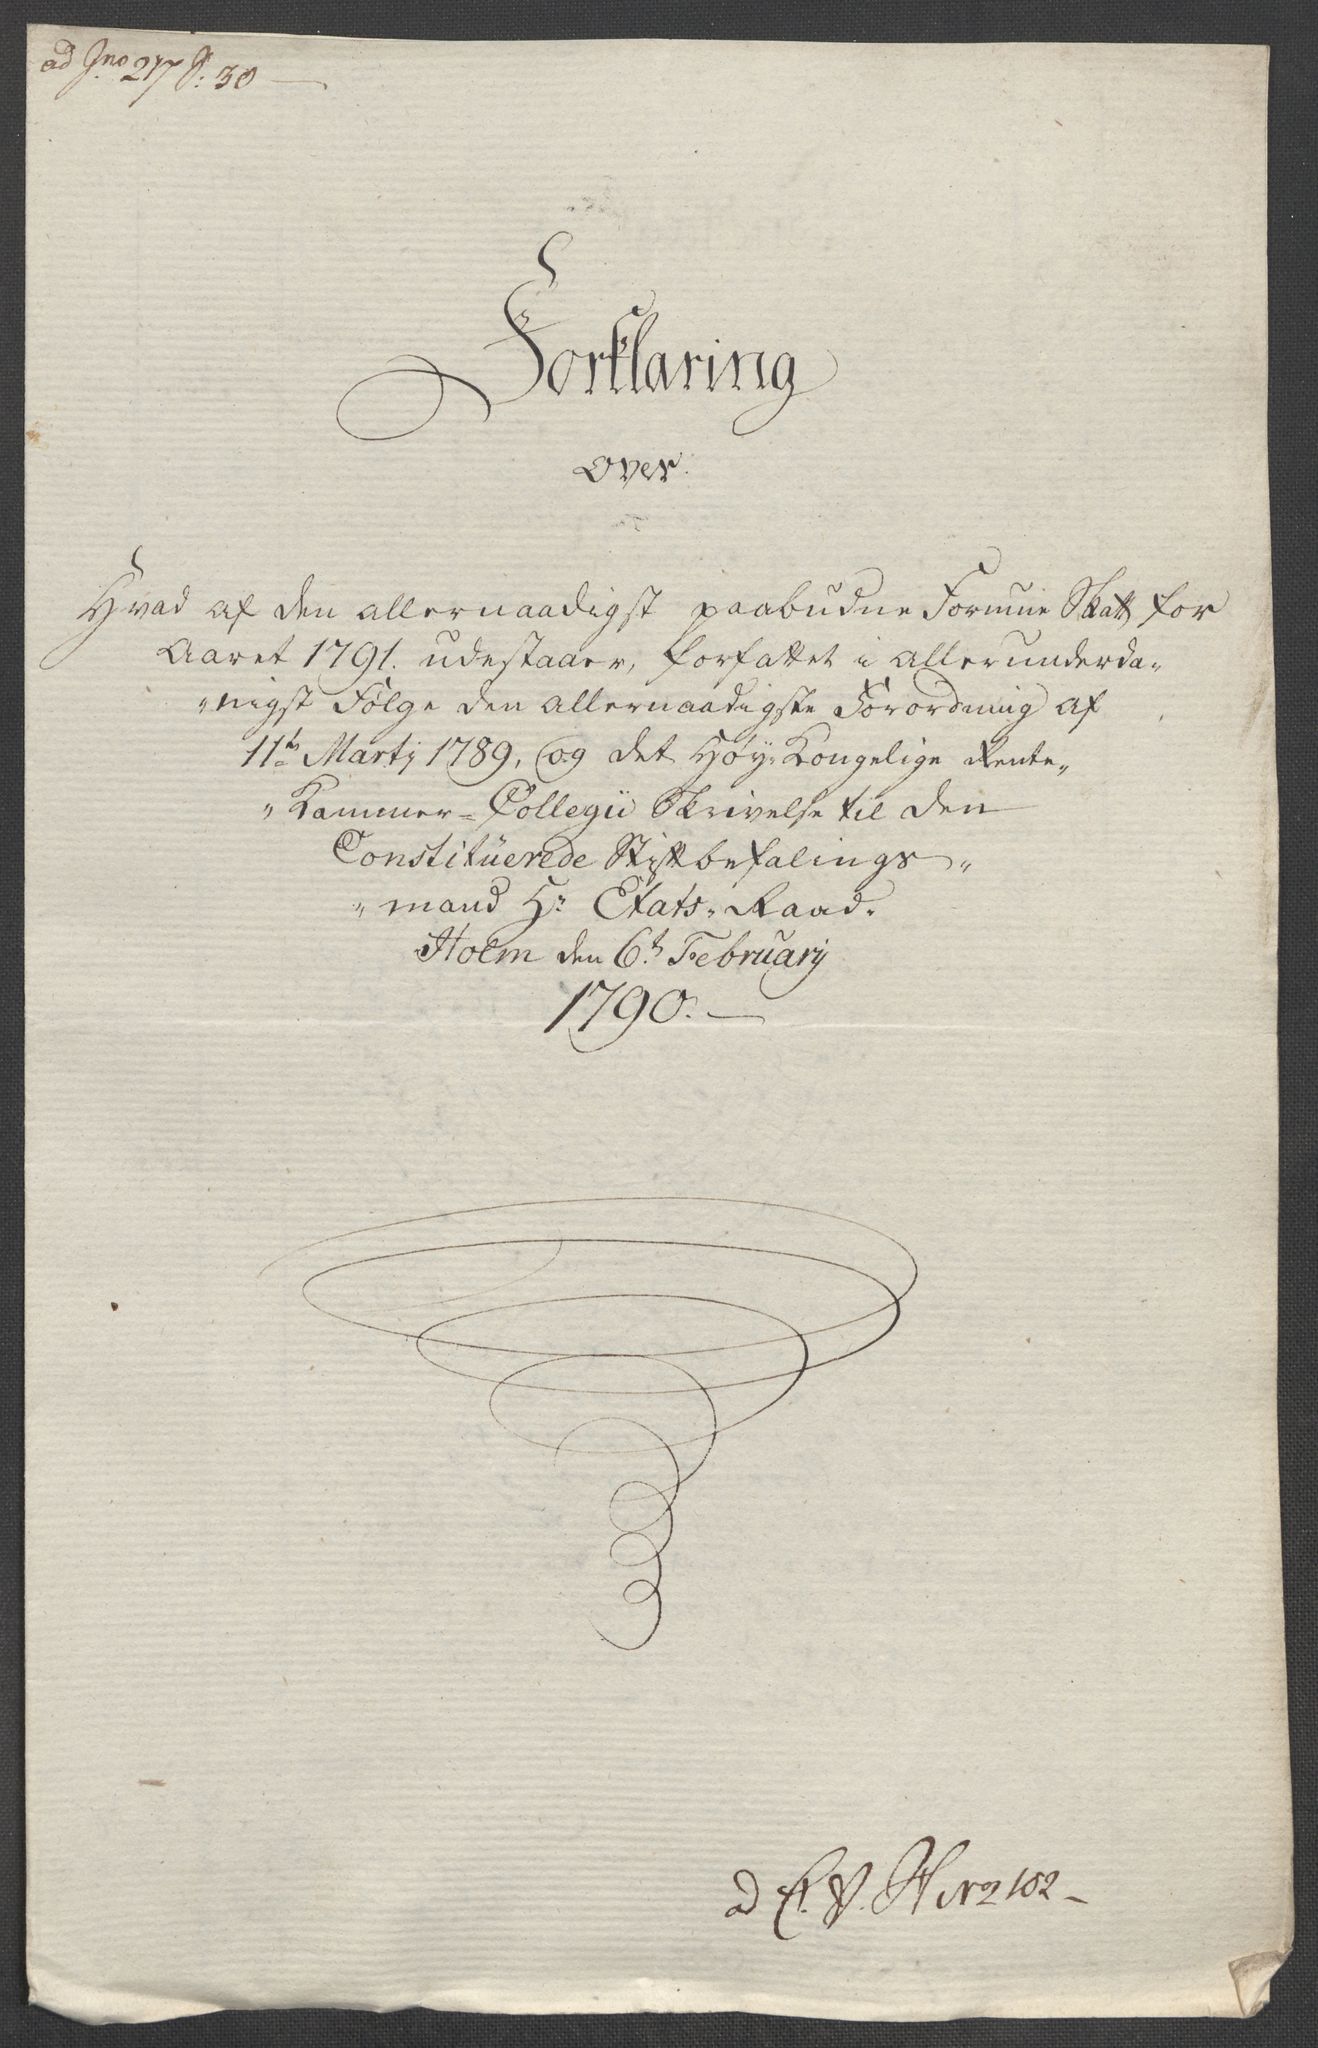 ad Jno 217 P: 30
Forklaring
over
Hvad af den allernaadigst paabudne Formue Skatt for
Aaret 1791. udestaaer, forfattet i allerunderda„
„nigst Følge den allernaadigste Forordning af
11te Martij 1789, og det Høy-Kongelige Rente„
„Kammer-Collegii Skrivelse til den
Constituerede Stiftbefalings„
„mand Hr Etats-Raad.
Holm den 6te Februarij
1790.
ad No 102